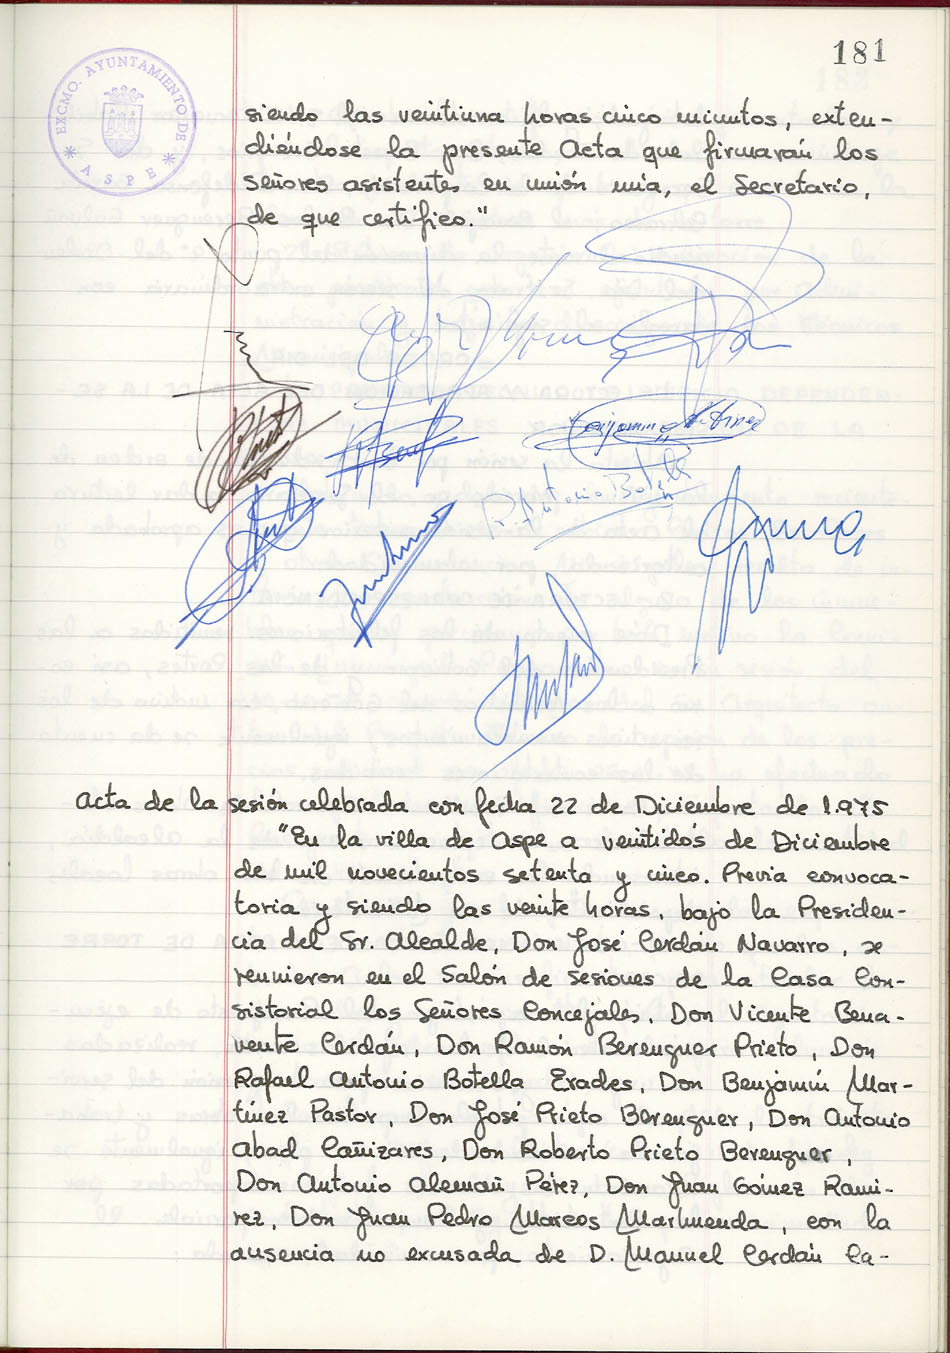 181
EXCMO. AYUNTAMIENTO DE
ASPE
siendo las veintiuna horas cinco minutos, exten-
diéndose la presente Acta que firmarán los
Señores asistentes en unión mía, el Secretario,
de que certifico."
Benjamin Martinez
R. Antonio Botella
Acta de la sesión celebrada con fecha 22 de Diciembre de 1.975
"En la villa de Aspe a veintidós de Diciembre
de mil novecientos setenta y cinco. Previa convoca-
toria y siendo las veinte horas, bajo la Presiden-
cia del Sr. Alcalde, Don José Cerdán Navarro, se
reunieron en el Salón de sesiones de la Casa Con-
sistorial los Señores Concejales, Don Vicente Bena-
vente Cerdán, Don Ramón Berenguer Prieto, Don
Rafael Antonio Botella Erades, Don Benjamín Mar-
tínez Pastor, Don José Prieto Berenguer, Don Antonio
Abad Cañizares, Don Roberto Prieto Berenguer,
Don Antonio Alemañ Pérez, Don Juan Gómez Rami-
rez, Don Juan Pedro Marcos Marhuenda, con la
ausencia no excusada de D. Manuel Cerdán Ca-